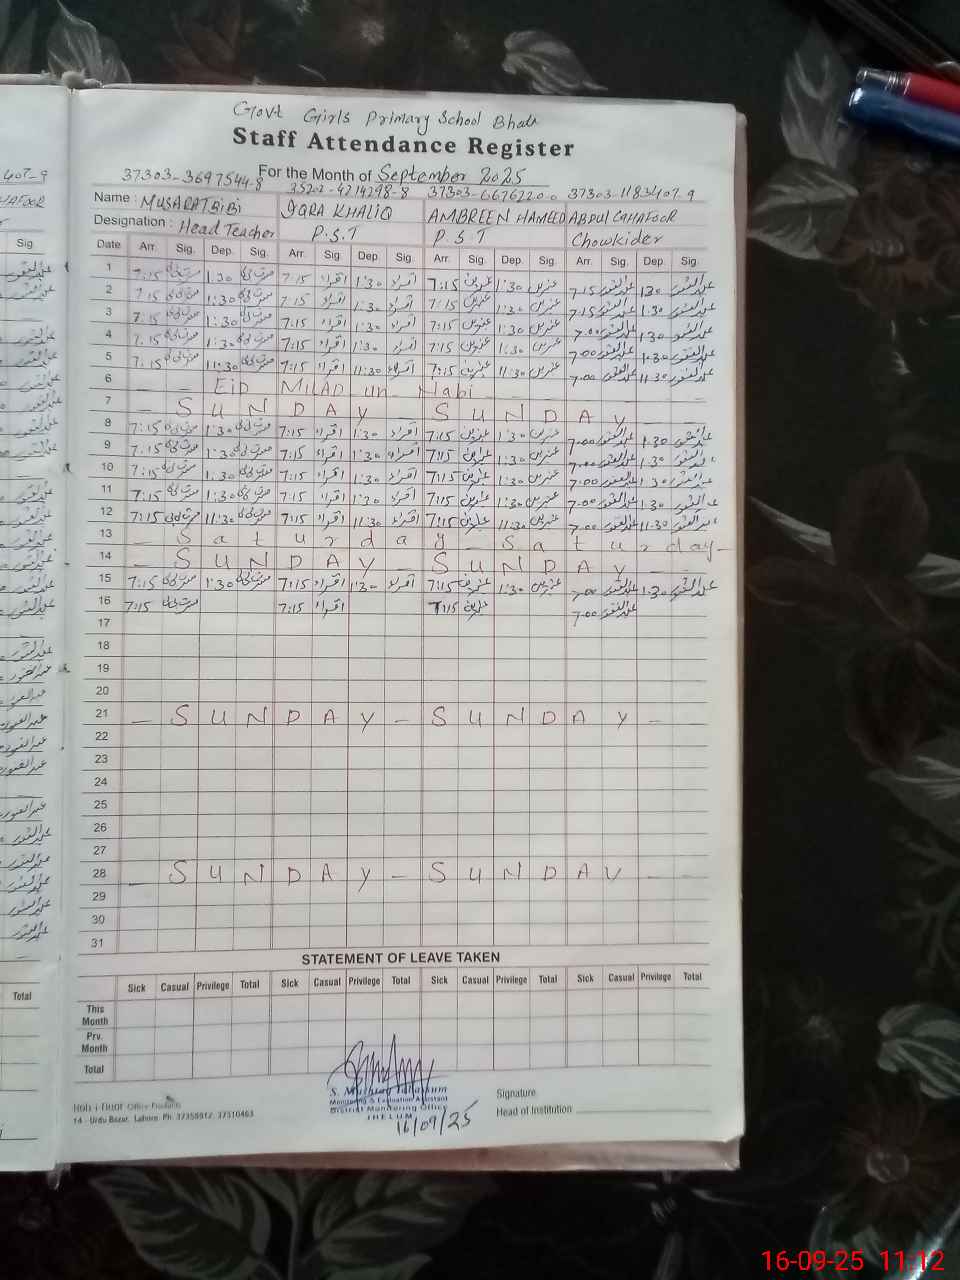 Govt Girls Primary School
Staff Attendance Register
For the Month of September 2025
37303-3697544-8 35202-4214298-8 37303-6676220-0 37303-1183407-9
Name : MUSARAT BIBI IQRA KHALIQ AMBREEN HAMEED ABDUL GHAFOOR
Designation : Head Teacher P.S.T P.S.T Chowkider
Date Arr. Sig. Dep. Sig. Arr. Sig. Dep. Sig. Arr. Sig. Dep. Sig. Arr. Sig. Dep. Sig.
1 7:15 1:30 7:15 اقراء 1:30 اقراء 7:15 عنبرین 1:30 عنبرین 7:15 عبدالغفور 1:30 عبدالغفور
2 7:15 1:30 7:15 اقراء 1:30 اقراء 7:15 عنبرین 1:30 عنبرین 7:15 عبدالغفور 1:30 عبدالغفور
3 7:15 1:30 7:15 اقراء 1:30 اقراء 7:15 عنبرین 1:30 عنبرین 7:00 عبدالغفور 1:30 عبدالغفور
4 7:15 1:30 7:15 اقراء 1:30 اقراء 7:15 عنبرین 1:30 عنبرین 7:00 عبدالغفور 1:30 عبدالغفور
5 7:15 11:30 7:15 اقراء 11:30 اقراء 7:15 عنبرین 11:30 عنبرین 7:00 عبدالغفور 11:30 عبدالغفور
6 — — Eid MILAD un Nabi — —
7 — S U N D A Y — S U N D A Y —
8 7:15 1:30 7:15 اقراء 1:30 اقراء 7:15 عنبرین 1:30 عنبرین 7:00 عبدالغفور 1:30 عبدالغفور
9 7:15 1:30 7:15 اقراء 1:30 اقراء 7:15 عنبرین 1:30 عنبرین 7:00 عبدالغفور 1:30 عبدالغفور
10 7:15 1:30 7:15 اقراء 1:30 اقراء 7:15 عنبرین 1:30 عنبرین 7:00 عبدالغفور 1:30 عبدالغفور
11 7:15 1:30 7:15 اقراء 1:30 اقراء 7:15 عنبرین 1:30 عنبرین 7:00 عبدالغفور 1:30 عبدالغفور
12 7:15 11:30 7:15 اقراء 11:30 اقراء 7:15 عنبرین 11:30 عنبرین 7:00 عبدالغفور 11:30 عبدالغفور
13 — S a t u r d a y — S a t u r d a y —
14 — S U N D A Y — S U N D A Y — —
15 7:15 1:30 7:15 اقراء 1:30 اقراء 7:15 عنبرین 1:30 عنبرین 7:00 عبدالغفور 1:30 عبدالغفور
16 7:15 7:15 اقراء 7:15 عنبرین 7:00 عبدالغفور
17
18
19
20
21 — S U N D A Y — S U N D A Y —
22
23
24
25
26
27
28 — S U N D A Y — S U N D A Y — —
29
30
31
STATEMENT OF LEAVE TAKEN
Sick Casual Privilege Total Sick Casual Privilege Total Sick Casual Privilege Total Sick Casual Privilege Total
This Month
Prv. Month
Total
Monitoring & Evaluation Assistant
District Monitoring Office
JHELUM
16/09/25
Signature
Head of Institution
14 - Urdu Bazar, Lahore. Ph: 37358912, 37310463
Sig.
Total
16-09-25 11:12